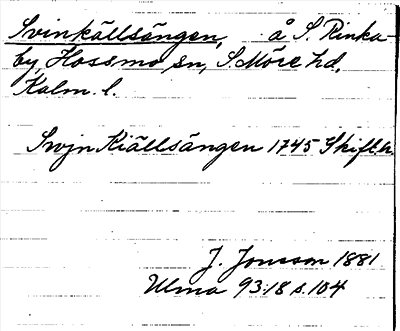 Svinkällsängen, å S. Rinka-
by, Hossmo sn, S. Möre hd.
Kalm. l.
Svjn Kiällsängen 1745 Skift.a.
J. Jonsson 1881
Ulma 93:18 s. 104